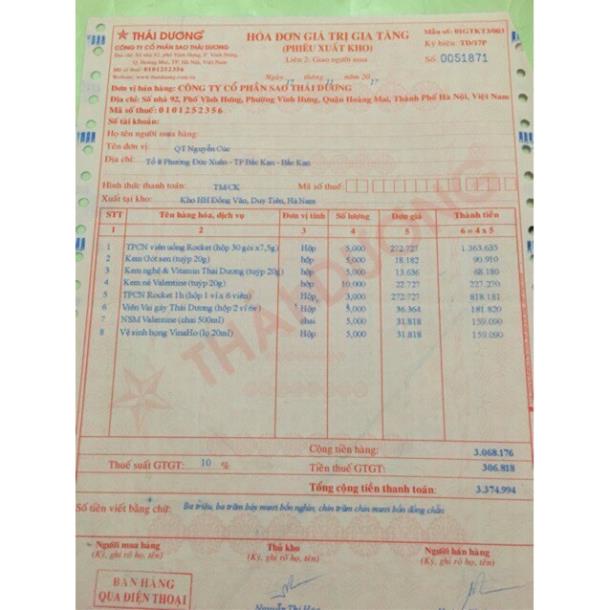 THÁI DƯƠNG
CÔNG TY CỔ PHẦN SAO THÁI DƯƠNG
Địa chỉ: Số nhà 92, phố Vĩnh Hưng, P. Vĩnh Hưng,
Q. Hoàng Mai, TP. Hà Nội, Việt Nam
Mã số thuế: 0101252356
Website: www.thaiduong.com.vn
HÓA ĐƠN GIÁ TRỊ GIA TĂNG
(PHIẾU XUẤT KHO)
Liên 2: Giao người mua
Ngày 17 tháng 11 năm 2017
Mẫu số: 01GTKT3/003
Ký hiệu: TD/17P
Số: 0051871
Đơn vị bán hàng: CÔNG TY CỔ PHẦN SAO THÁI DƯƠNG
Địa chỉ: Số nhà 92, Phố Vĩnh Hưng, Phường Vĩnh Hưng, Quận Hoàng Mai, Thành Phố Hà Nội, Việt Nam
Mã số thuế: 0101252356
Số tài khoản:
Họ tên người mua hàng:
Tên đơn vị: QT Nguyễn Cúc
Địa chỉ: Tổ 8 Phường Đức Xuân - TP Bắc Kạn - Bắc Kạn
Hình thức thanh toán: TM/CK Mã số thuế
Xuất tại kho: Kho HH Đồng Văn, Duy Tiên, Hà Nam
STT Tên hàng hóa, dịch vụ Đơn vị tính Số lượng Đơn giá Thành tiền
1 2 3 4 5 6 = 4 x 5
1 TPCN viên uống Rocket (hộp 30 gói x7,5g) Hộp 5,000 272.727 1.363.635
2 Kem Gót sen (tuýp 20g) Hộp 5,000 18.182 90.910
3 Kem nghệ & Vitamin Thái Dương (tuýp 20g) hộp 5,000 13.636 68.180
4 Kem nẻ Valentine (tuýp 20g) hộp 10,000 22.727 227.270
5 TPCN Rocket 1h (hộp 1 vỉ x 6 viên) Hộp 3,000 272.727 818.181
6 Viên Vai gáy Thái Dương (hộp 2 vỉ 6v) Hộp 5,000 36.364 181.820
7 NSM Valentine (chai 500ml) chai 5,000 31.818 159.090
8 Vệ sinh họng VinaHo (lọ 20ml) Hộp 5,000 31.818 159.090
THÁI DƯƠNG
Cộng tiền hàng: 3.068.176
Thuế suất GTGT: 10 % Tiền thuế GTGT: 306.818
Tổng cộng tiền thanh toán: 3.374.994
Số tiền viết bằng chữ: Ba triệu, ba trăm bảy mươi bốn nghìn, chín trăm chín mươi bốn đồng chẵn
Người mua hàng Thủ kho Người bán hàng
(Ký, ghi rõ họ, tên) (Ký, ghi rõ họ, tên) (Ký, ghi rõ họ, tên)
BÁN HÀNG
QUA ĐIỆN THOẠI